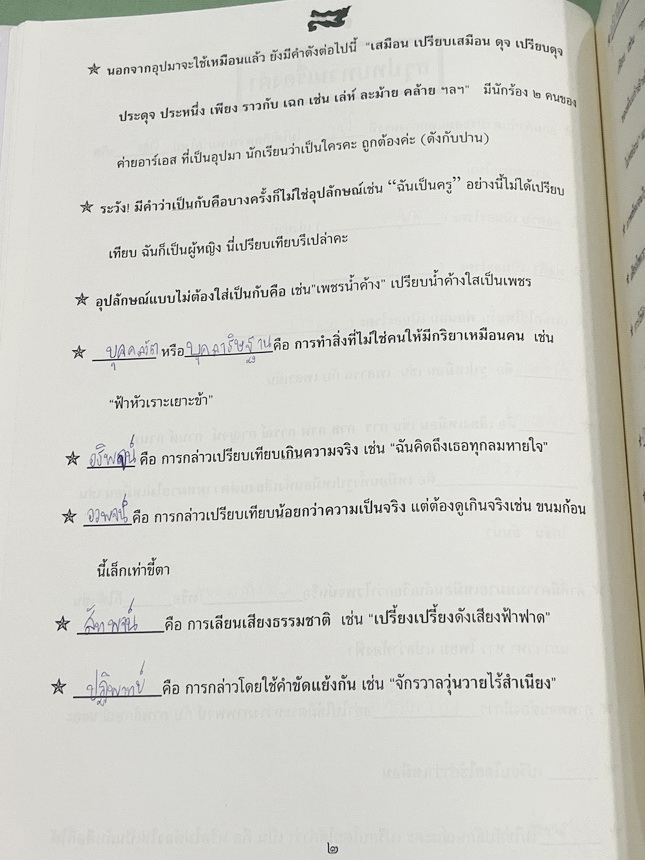 ✯ นอกจากอุปมาจะใช้เหมือนแล้ว ยังมีคำดังต่อไปนี้ “เสมือน เปรียบเสมือน ดุจ เปรียบดุจ
ประดุจ ประหนึ่ง เพียง ราวกับ เฉก เช่น เล่ห์ ละม้าย คล้าย ฯลฯ” มีนักร้อง ๒ คนของ
ค่ายอาร์เอส ที่เป็นอุปมา นักเรียนว่าเป็นใครคะ ถูกต้องค่ะ (ดังกับปาน)
✯ ระวัง! มีคำว่าเป็นกับคือบางครั้งก็ไม่ใช่อุปลักษณ์เช่น “ฉันเป็นครู” อย่างนี้ไม่ได้เปรียบ
เทียบ ฉันก็เป็นผู้หญิง นี่เปรียบเทียบรึเปล่าคะ
✯ อุปลักษณ์แบบไม่ต้องใส่เป็นกับคือ เช่น“เพชรน้ำค้าง” เปรียบน้ำค้างใสเป็นเพชร
✯ บุคคลวัต หรือ บุคลาธิษฐาน คือ การทำสิ่งที่ไม่ใช่คนให้มีกริยาเหมือนคน เช่น
“ฟ้าหัวเราะเยาะข้า”
✯ อธิพจน์ คือ การกล่าวเปรียบเทียบเกินความจริง เช่น “ฉันคิดถึงเธอทุกลมหายใจ”
✯ อวพจน์ คือ การกล่าวเปรียบเทียบน้อยกว่าความเป็นจริง แต่ต้องดูเกินจริงเช่น ขนมก้อน
นี้เล็กเท่าขี้ตา
✯ สัทพจน์ คือ การเลียนเสียงธรรมชาติ เช่น “เปรี้ยงเปรี้ยงดังเสียงฟ้าฟาด”
✯ ปฏิพากย์ คือ การกล่าวโดยใช้คำขัดแย้งกัน เช่น “จักรวาลวุ่นวายไร้สำเนียง”
๒